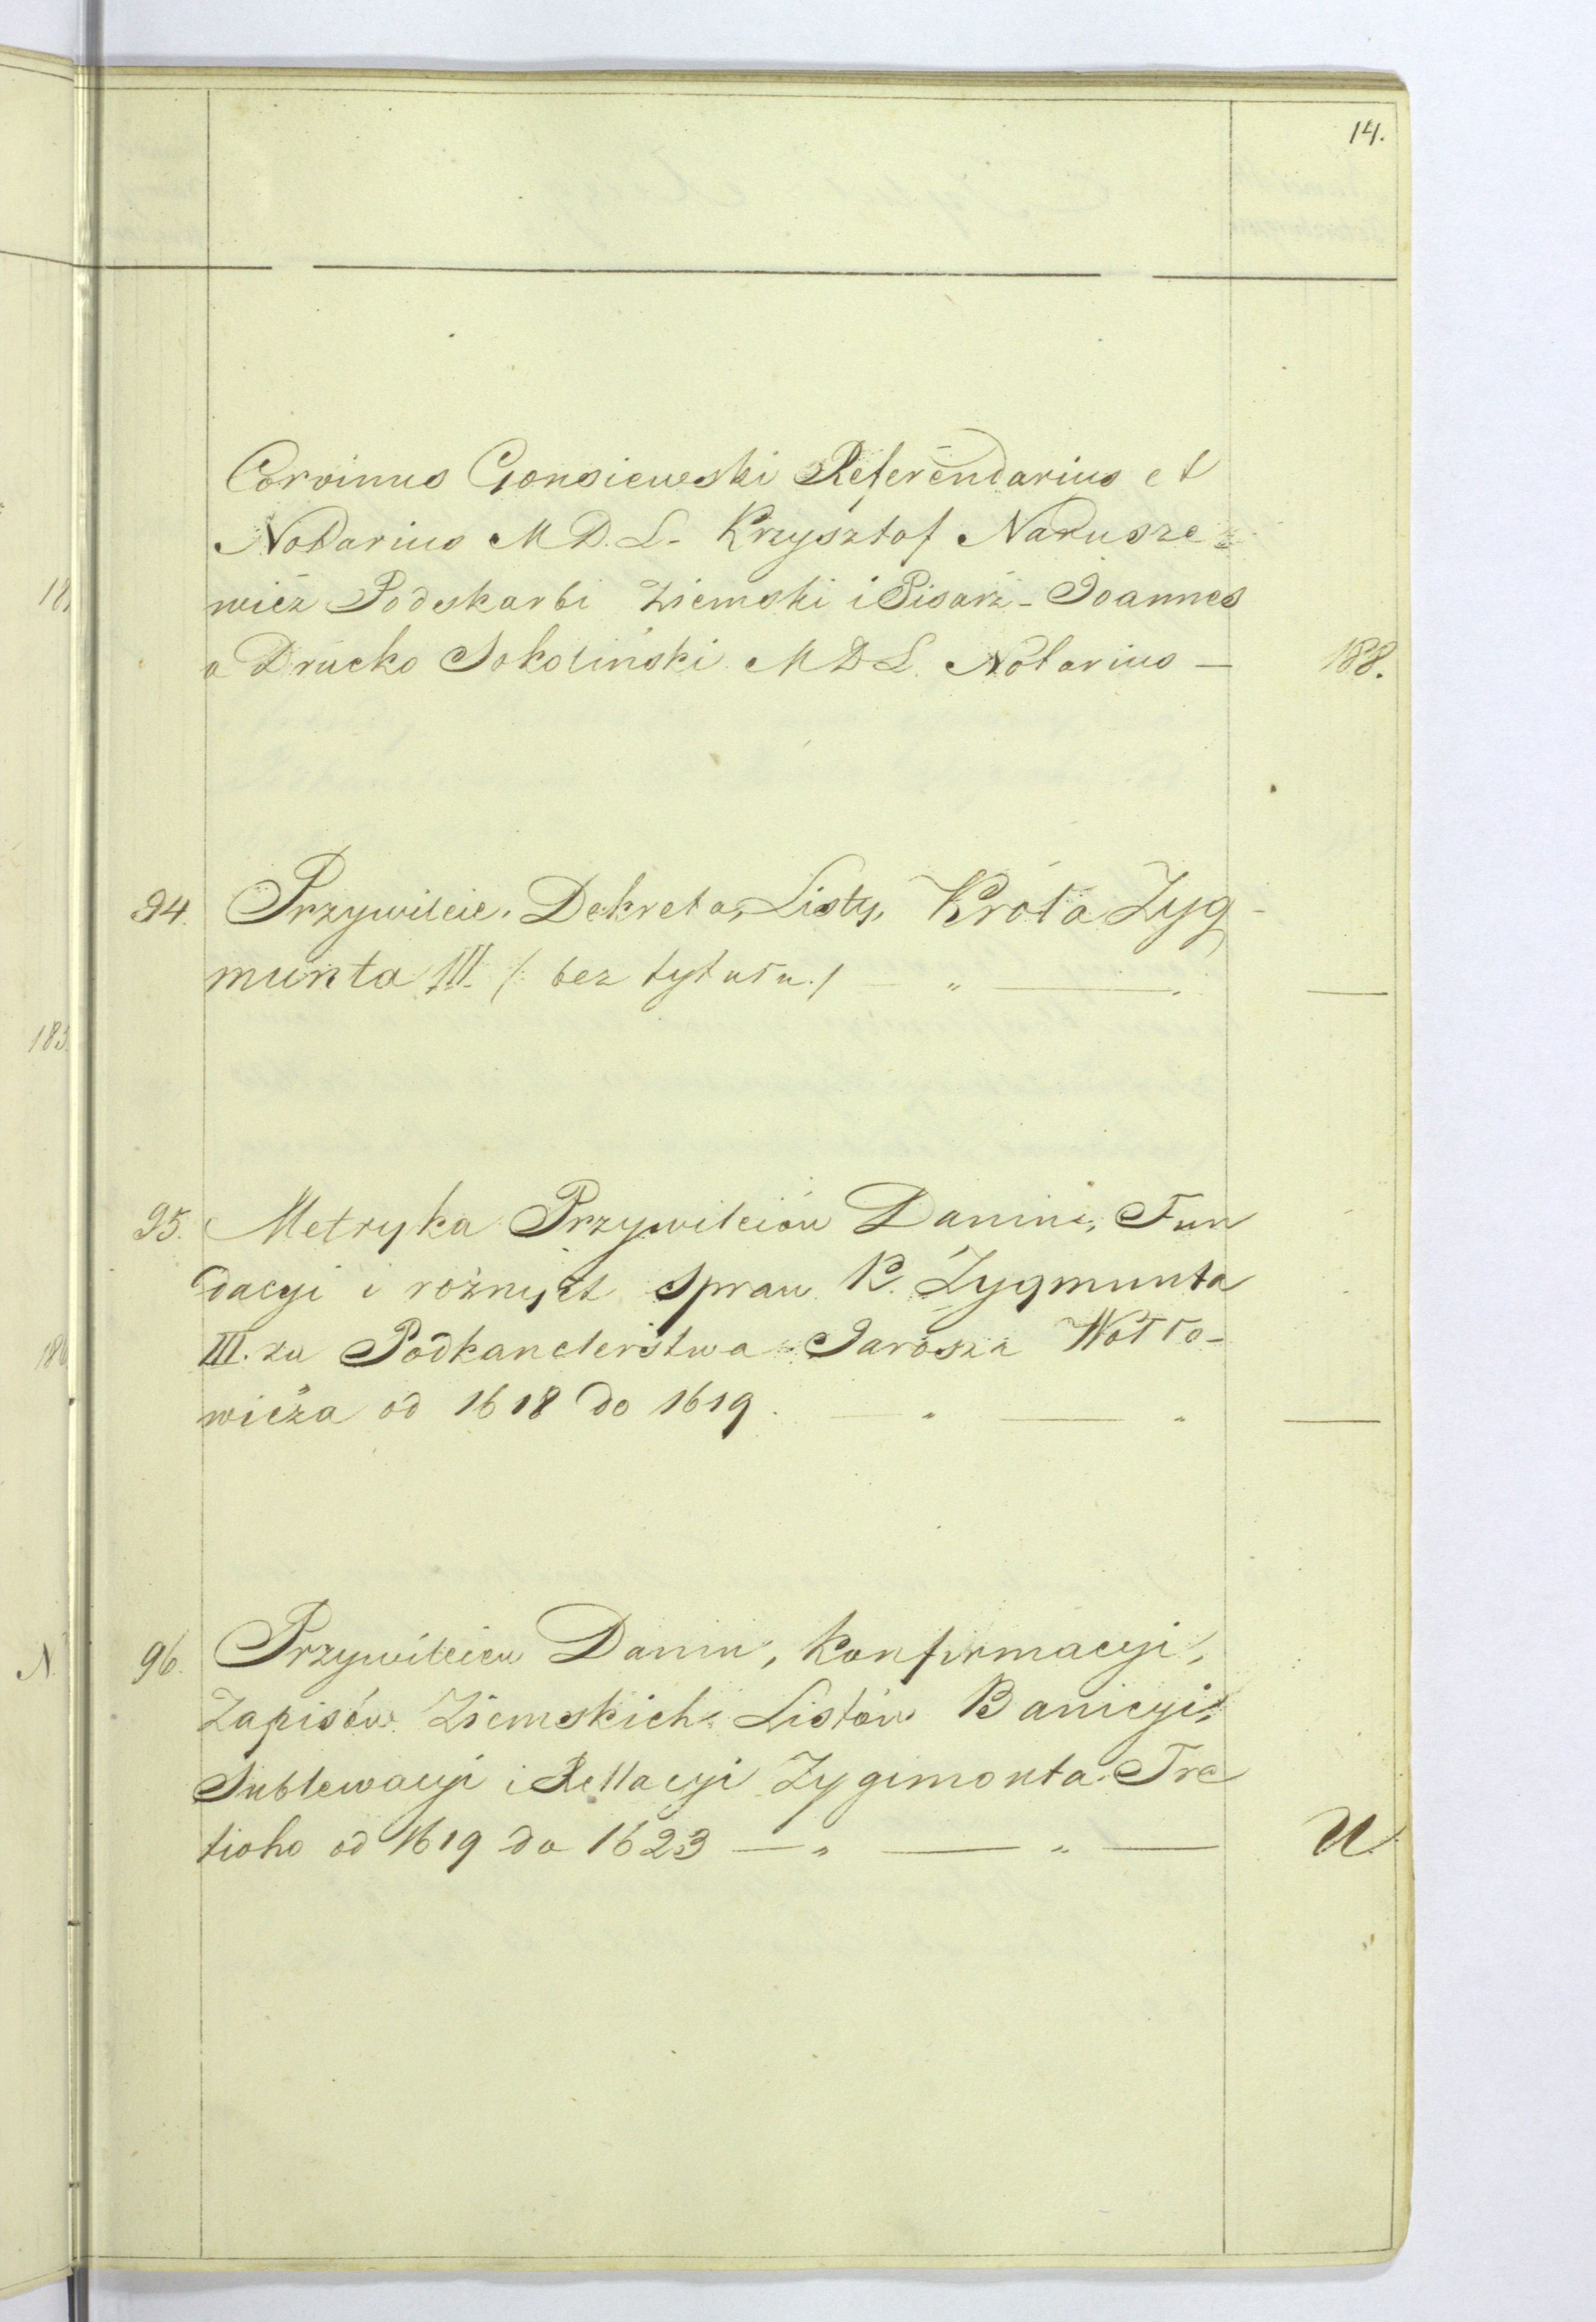 14.
Corvinus Gonsiewski Referendarius et
Notarius M D. L. Krzysztof Narusze=
wicz Podskarbi Ziemski i Pisarz - Joannes
a Drucko Sokoliński M D L. Notarius — 188.
94. Przywileie, Dekreta, Listy, Króla Zyg-
munta III. /: bez tytułu./ — " — " —
95. Metryka Przywileiów Danin, Fun
dacyi i rożnych Spraw K. Zygmunta
III. za Podkanclerstwa Jarosza Wołło-
wicza od 1618 do 1619. — " — " —
96. Przywileiew Danin, Konfirmacyi,
Zapisów Ziemskich Listów Banicyi,
Sublewacyi i Rellacyi Zygimonta Tre
tioho od 1619 do 1623 — " — " — U.